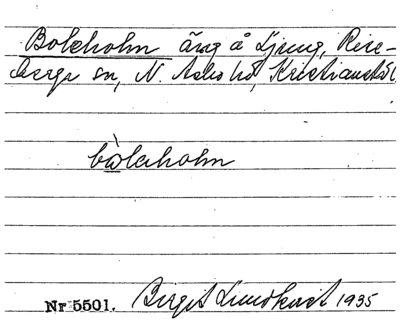 Boleholm äng å Ljung, Rise-
berga sn, N. Åsbo hd, Kristianst. l.
bòleholm
Nr 5501. Birgit Lundkvist 1935